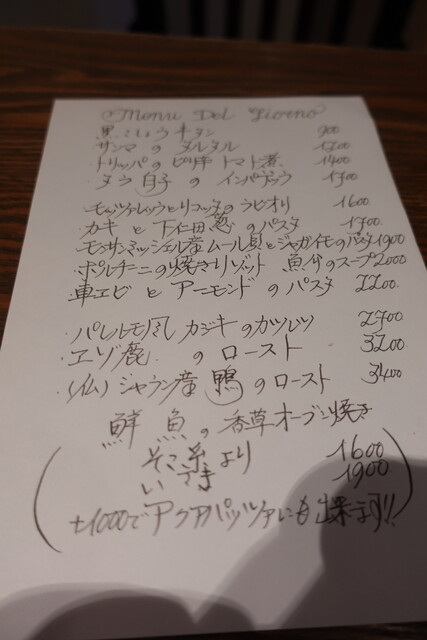 Menu Del Giorno
黒こしょう牛タン 900
サンマのタルタル 1200
トリッパのピリ辛トマト煮 1400
タラ白子のインパデッラ 1700
モッツァレッラとリコッタのラビオリ 1600
カキと下仁田葱のパスタ 1700
モンサンミッシェル産ムール貝とジャガイモのパスタ 1900
ポルチーニの焼きリゾット 魚介のスープ 2000
車エビとアーモンドのパスタ 2200
パレルモ風カジキのカツレツ 2700
エゾ鹿のロースト 3200
(仏)シャラン産鴨のロースト 3400
鮮魚の香草オーブン焼き
より 1600
いさき 1900
+1000でアクアパッツァにも出来ます!!